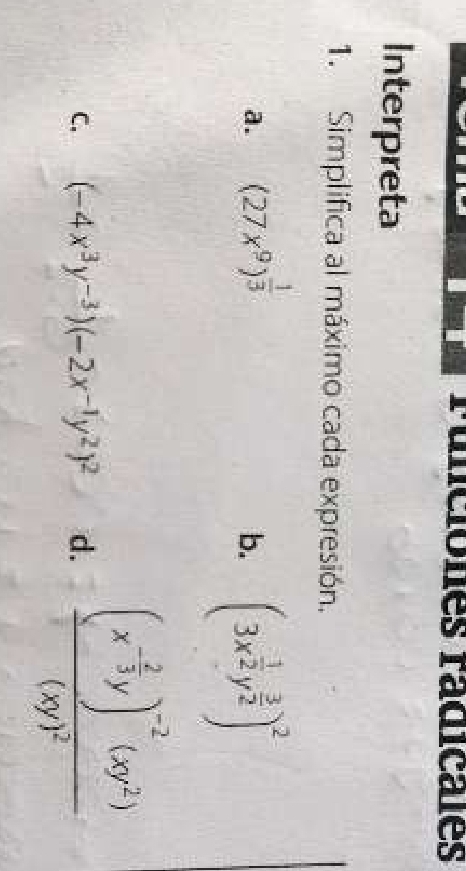 Funciones radicales
Interpreta
1. Simplifica al máximo cada expresión.
a. (27x⁹)^(1/3)
b. (3x^(1/2)y^(3/2))²
c. (−4x³y⁻³)(−2x⁻¹y²)²
d. ((x^(−2/3)y)⁻²(xy²))/(xy)²